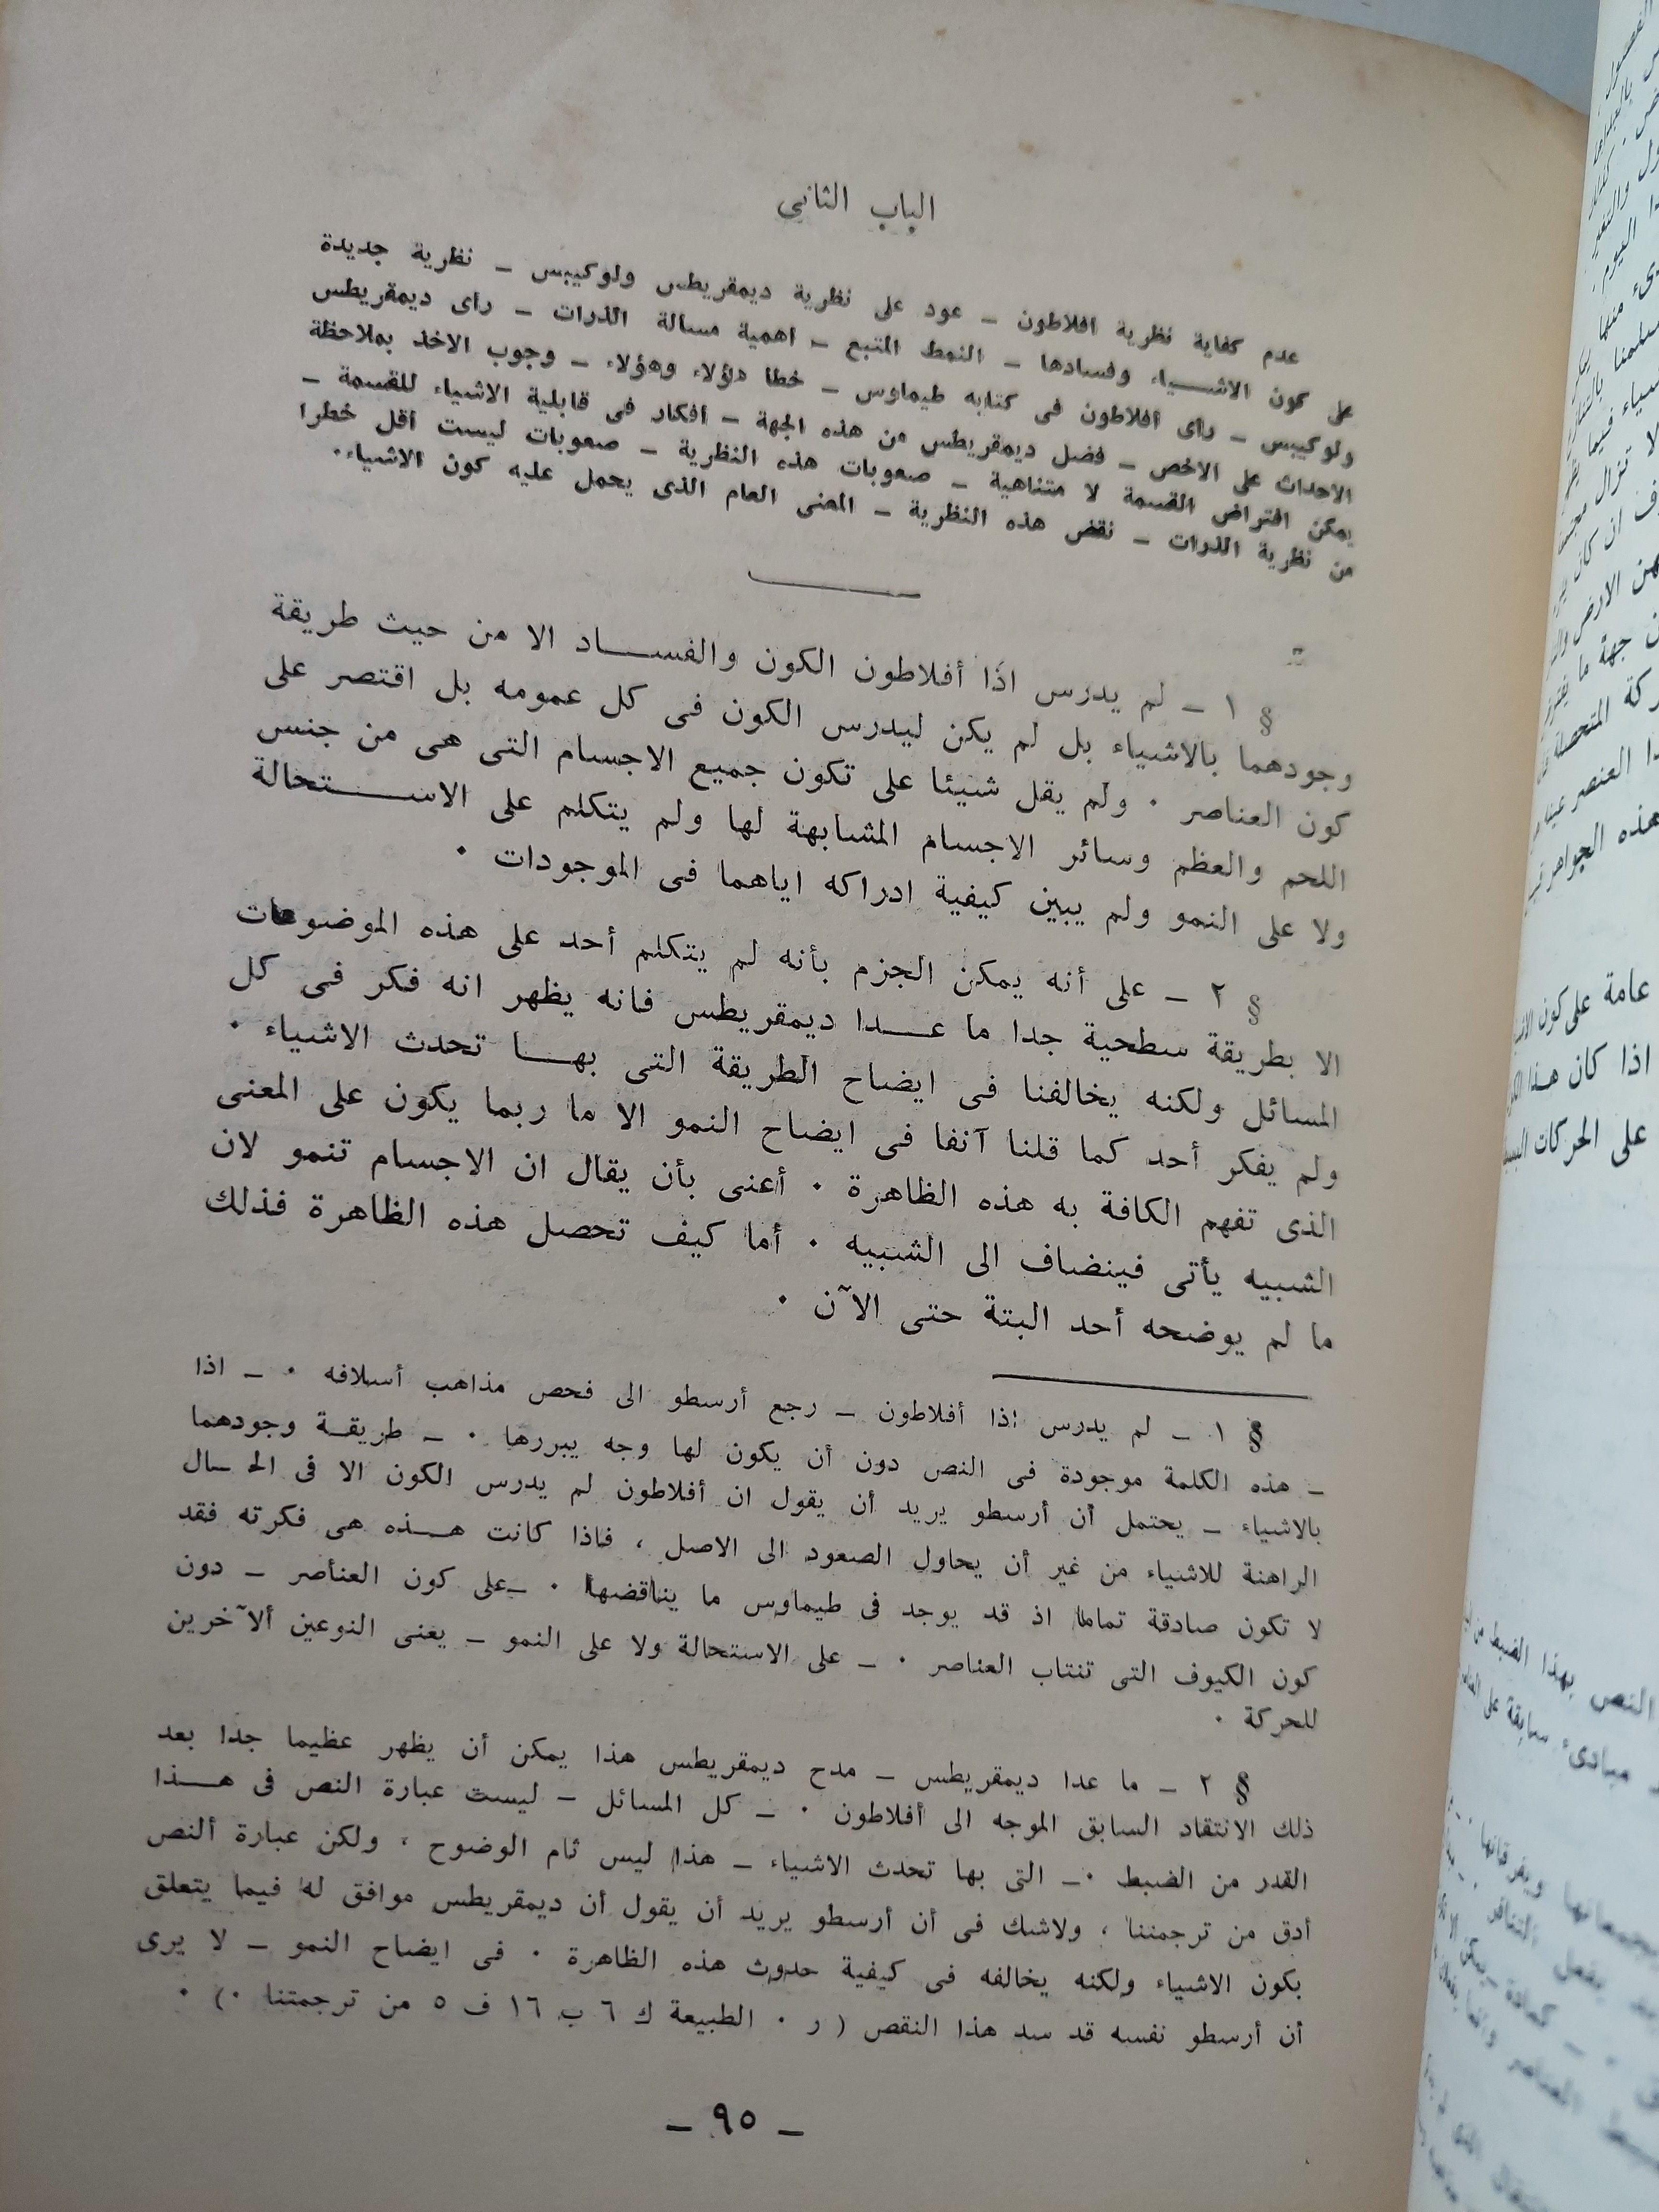 الباب الثاني
عدم كفاية نظرية افلاطون – عود على نظرية ديمقريطس ولوكيبس – نظرية جديدة
على كون الاشياء وفسادها – النمط المتبع – اهمية مسالة الذرات – راى ديمقريطس
ولوكيبس – راى افلاطون فى كتابه طيماوس – خطا هؤلاء وهؤلاء – وجوب الاخذ بملاحظة
الاحداث على الاخص – فضل ديمقريطس من هذه الجهة – افكار فى قابلية الاشياء للقسمة –
يمكن افتراض القسمة لا متناهية – صعوبات هذه النظرية – صعوبات ليست أقل خطرا
من نظرية الذرات – نقض هذه النظرية – المعنى العام الذى يحمل عليه كون الاشياء.
§ ١ – لم يدرس اذا أفلاطون الكون والفساد الا من حيث طريقة
وجودهما بالاشياء بل لم يكن ليدرس الكون فى كل عمومه بل اقتصر على
كون العناصر . ولم يقل شيئا على تكون جميع الاجسام التى هى من جنس
اللحم والعظم وسائر الاجسام المشابهة لها ولم يتكلم على الاستحالة
ولا على النمو ولم يبين كيفية ادراكه اياهما فى الموجودات .
§ ٢ – على أنه يمكن الجزم بأنه لم يتكلم أحد على هذه الموضوعات
الا بطريقة سطحية جدا ما عدا ديمقريطس فانه يظهر انه فكر فى كل
المسائل ولكنه يخالفنا فى ايضاح الطريقة التى بها تحدث الاشياء .
ولم يفكر أحد كما قلنا آنفا فى ايضاح النمو الا ما ربما يكون على المعنى
الذى تفهم الكافة به هذه الظاهرة . أعنى بأن يقال ان الاجسام تنمو لان
الشبيه يأتى فينضاف الى الشبيه . أما كيف تحصل هذه الظاهرة فذلك
ما لم يوضحه أحد البتة حتى الآن .
§ ١ – لم يدرس اذا أفلاطون – رجع أرسطو الى فحص مذاهب أسلافه . – اذا
– هذه الكلمة موجودة فى النص دون أن يكون لها وجه يبررها . – طريقة وجودهما
بالاشياء – يحتمل أن أرسطو يريد أن يقول ان أفلاطون لم يدرس الكون الا فى الحال
الراهنة للاشياء من غير أن يحاول الصعود الى الاصل ، فاذا كانت هذه هى فكرته فقد
لا تكون صادقة تماما اذ قد يوجد فى طيماوس ما يناقضها . – على كون العناصر – دون
كون الكيوف التى تنتاب العناصر . – على الاستحالة ولا على النمو – يعنى النوعين الآخرين
للحركة .
§ ٢ – ما عدا ديمقريطس – مدح ديمقريطس هذا يمكن أن يظهر عظيما جدا بعد
ذلك الانتقاد السابق الموجه الى أفلاطون . – كل المسائل – ليست عبارة النص فى هذا
القدر من الضبط . – التى بها تحدث الاشياء – هذا ليس تام الوضوح ، ولكن عبارة النص
أدق من ترجمتنا ، ولاشك فى أن أرسطو يريد أن يقول أن ديمقريطس موافق له فيما يتعلق
بكون الاشياء ولكنه يخالفه فى كيفية حدوث هذه الظاهرة . فى ايضاح النمو – لا يرى
أن أرسطو نفسه قد سد هذا النقص ( ر . الطبيعة ك ٦ ب ١٦ ف ٥ من ترجمتنا .) .
– ٩٥ –
عامة على كون
اذا كان هذا
على الحركات